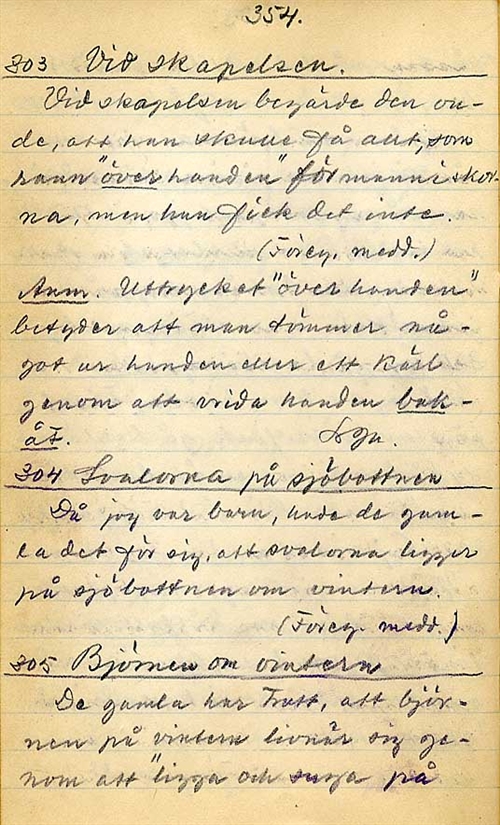 354.
303 Vid skapelsen.
Vid skapelsen begärde den on-
de, att han skulle få allt, som
rann "över handen" för människor-
na, men han fick det inte.
(Föreg. medd.)
Anm. Uttrycket "över handen"
betyder att man tömmer nå-
got ur handen eller ett kärl
genom att vrida handen bak-
åt.
304 Svalorna på sjöbottnen
Då jag var barn, hade de gam-
la det för sig, att svalorna ligger
på sjöbottnen om vintern.
(Föreg. medd.)
305 Björnen om vintern
De gamla har trott, att björ-
nen på vintern livnär sig ge-
nom att "ligga och suga på